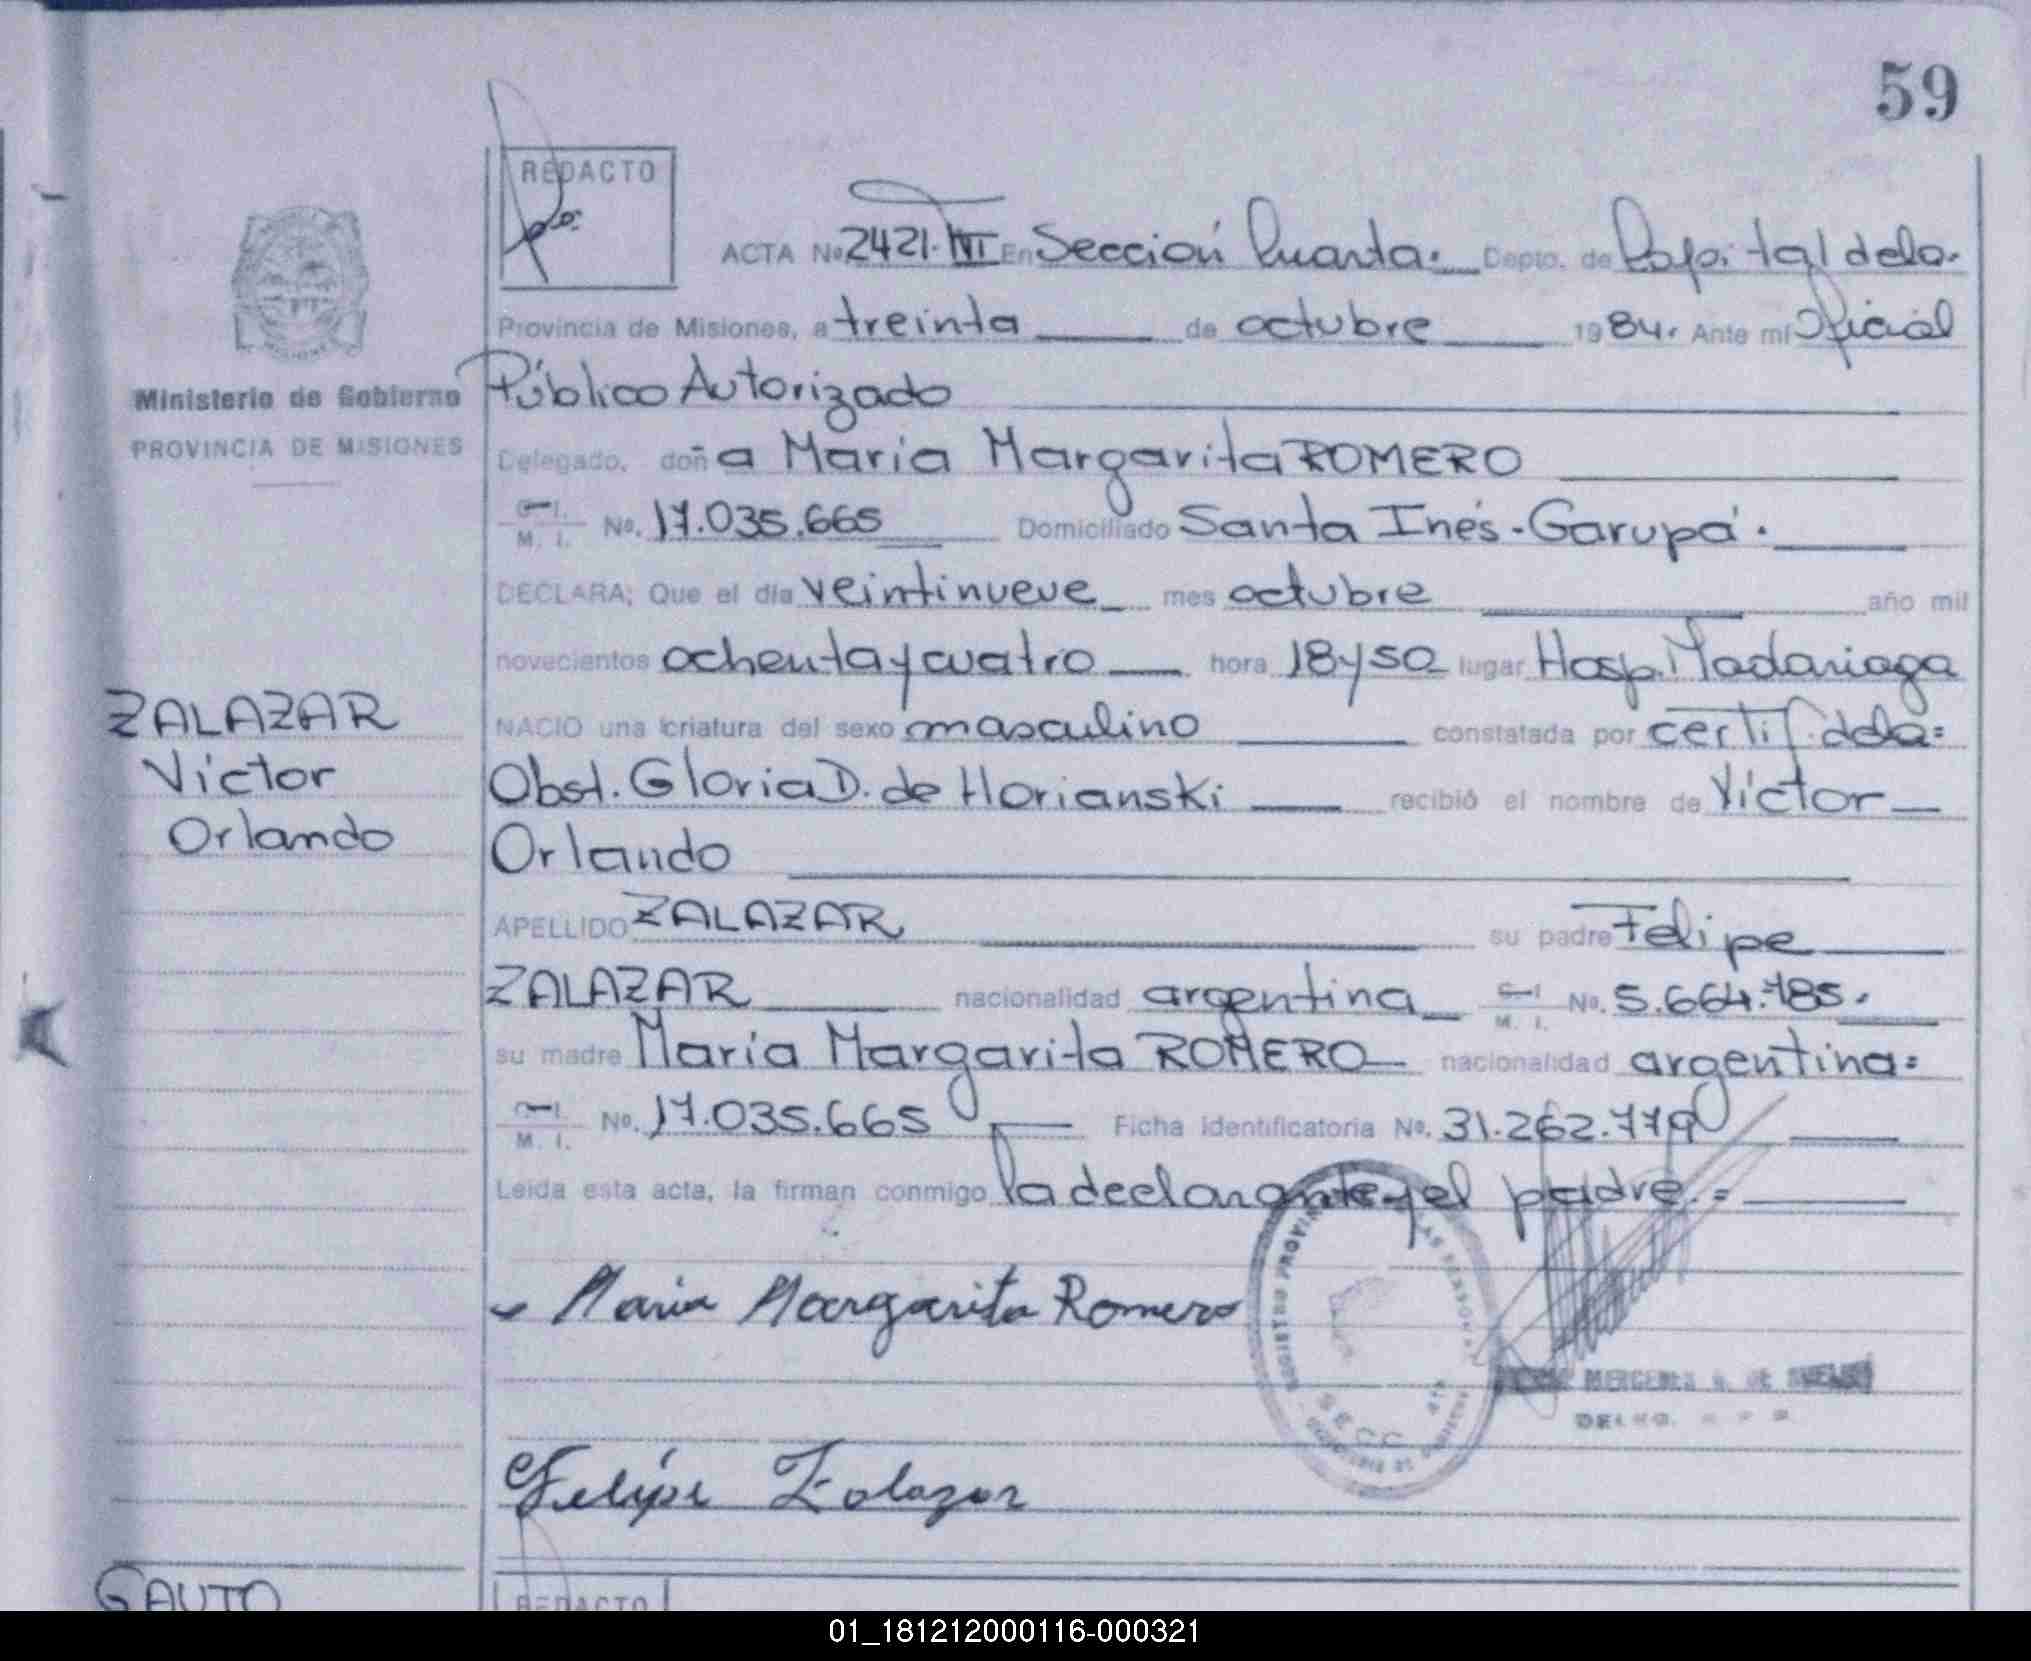 59
REDACTO
ACTA No 2421. En Sección Cuarta. Depto. de Capital de la.
Provincia de Misiones, a treinta de octubre 1984. Ante mí Oficial
Ministerio de Gobierno
Público Autorizado
PROVINCIA DE MISIONES
Delegado, doña María Margarita ROMERO
C. I.
M. I.
No. 17.035.665 Domiciliado Santa Inés - Garupá.
DECLARA; Que el día veintinueve mes octubre año mil
novecientos ochenta y cuatro hora 18 y 50 lugar Hosp. Madariaga
ZALAZAR
NACIO una criatura del sexo masculino constatada por certif. de la=
Víctor
Obst. Gloria D. de Horianski recibió el nombre de Víctor
Orlando
Orlando
APELLIDO ZALAZAR su padre Felipe
ZALAZAR nacionalidad argentina C. I.
M. I. No. 5.664.785.
su madre María Margarita ROMERO nacionalidad argentina=
C. I.
M. I.
No. 17.035.665 Ficha identificatoria No. 31.262.779
Leida esta acta, la firman conmigo la declarante y el padre.=
Maria Margarita Romero
REGISTRO PROVIN LAS PERSONAS
SECC. 4ta
MERCEDES DE
DELEG.
Felipe Zalazar
GAUTO
REDACTO
01_181212000116-000321